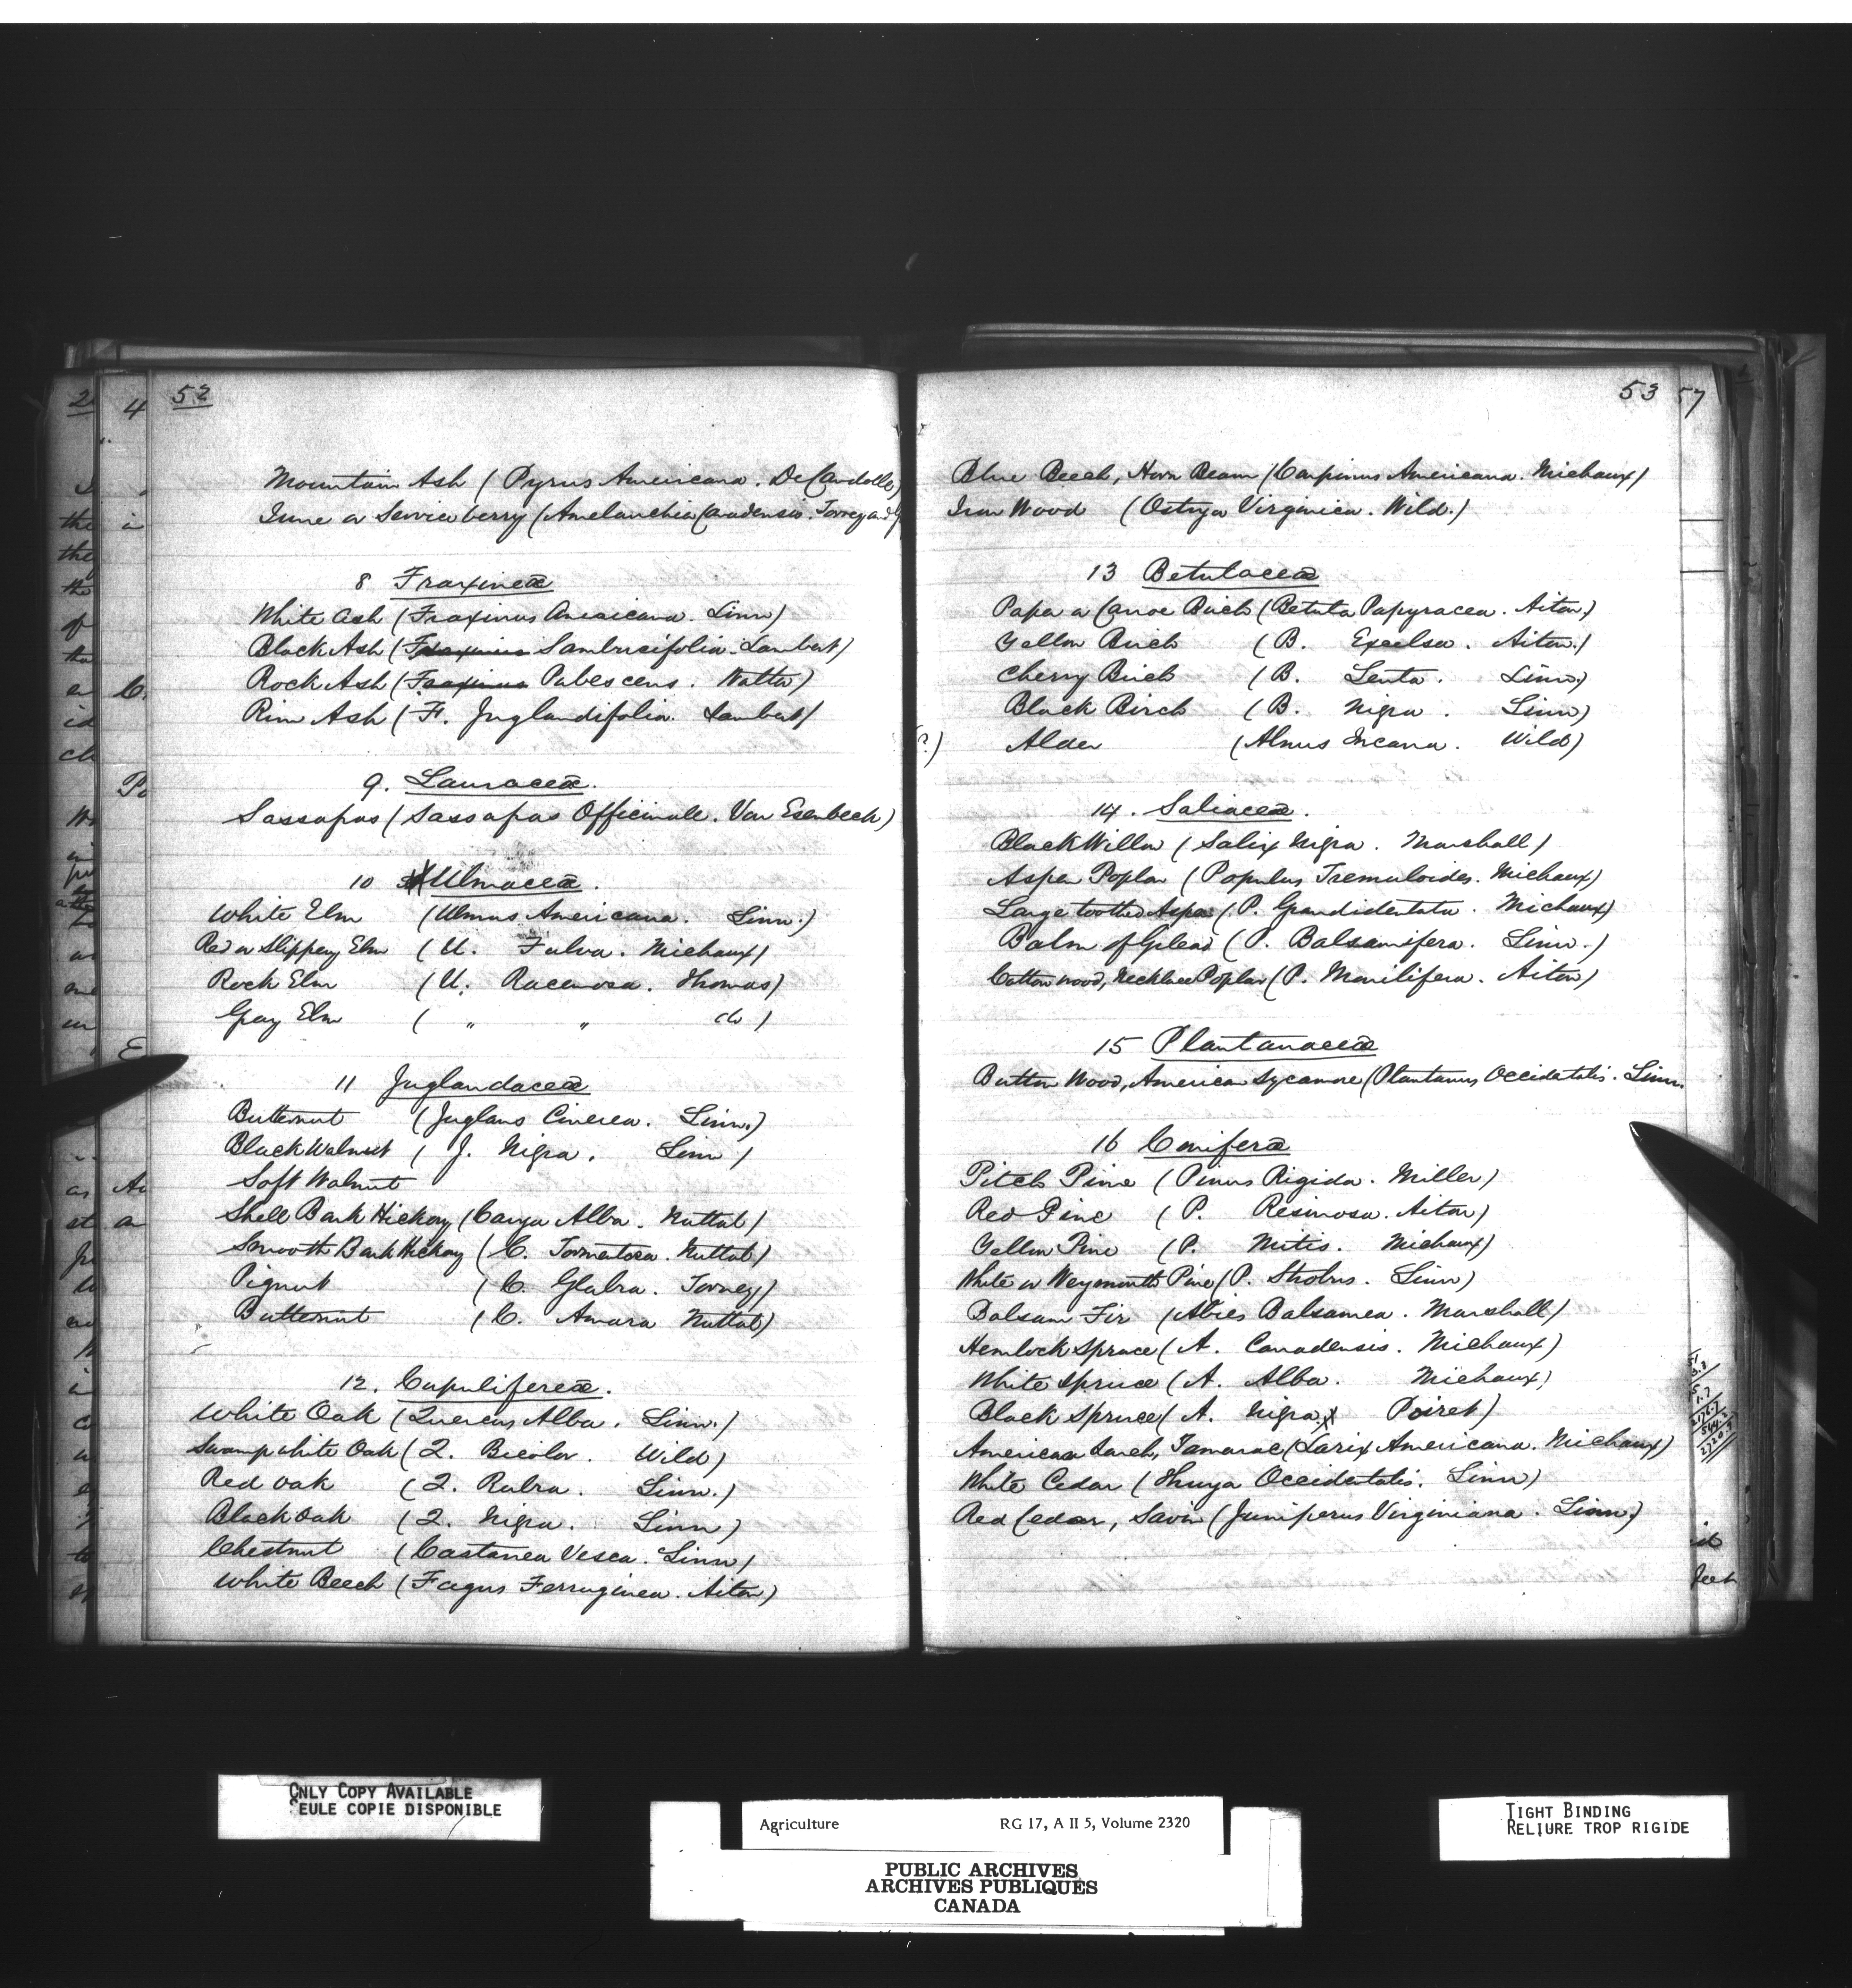 52
Mountain Ash (Pyrus Americana. De Candolle)
June or Service berry (Amelanchia Canadensis. Torrey and
8 Fraxineæ
White Ash (Fraxinus Americana. Linn)
Black Ash (Fraxinus Sambucifolia. Lambert)
Rock Ash (Fraxinus Pubescens. Walter)
Rim Ash (F. Juglandifolia. Lambert)
9. Lauraceæ.
Sassafras (Sassafras Officinale. Van Esenbeck)
10 Ulmaceæ.
White Elm (Ulmus Americana. Linn.)
Red or Slippery Elm (U. Fulva. Michaux)
Rock Elm (U. Racemosa. Thomas)
Gray Elm ( " " do )
11 Juglandaceæ
Butternut (Juglans Cinerea. Linn.)
Black Walnut (J. Nigra. Linn)
Soft Walnut
Shell Bark Hickory (Carya Alba. Nuttal)
Smooth Bark Hickory (C. Tormentosa. Nuttal)
Pignut (C. Glabra. Torrey)
Butternut (C. Amara Nuttal)
12. Cupulifereæ.
White Oak (Quercus Alba. Linn.)
Swamp white Oak (Q. Bicolor. Wild)
Red Oak (Q. Rubra. Linn.)
Black Oak (Q. Nigra. Linn)
Chestnut (Castanea Vesca. Linn)
White Beech (Fagus Ferruginea. Aiton)
53
57
Blue Beech, Horn Beam (Carpinus Americana. Michaux)
Iron Wood (Ostrya Virginica. Wild.)
13 Betulaceæ
Paper or Canoe Birch (Betula Papyracea. Aiton.)
Yellow Birch (B. Excelsa. Aiton.)
Cherry Birch (B. Lenta. Linn.)
Black Birch (B. Nigra. Linn)
(?) Alder (Alnus Incana. Wild)
14. Saliaceæ.
Black Willow (Salix Nigra. Marshall)
Aspen Poplar (Populus Tremuloides. Michaux)
Large toothed Aspen (P. Grandidentata. Michaux)
Balm of Gilead (P. Balsamifera. Linn.)
Cotton wood, Necklace Poplar (P. Monilifera. Aiton)
15 Plantanaceæ
Button Wood, American Sycamore (Plantanus Occidentalis. Linn.
16 Coniferæ
Pitch Pine (Pinus Rigida. Miller)
Red Pine (P. Resinosa. Aiton)
Yellow Pine (P. Mitis. Michaux)
White or Weymouth Pine (P. Strobus. Linn)
Balsam Fir (Abies Balsamea. Marshall)
Hemlock Spruce (A. Canadensis. Michaux)
White Spruce (A. Alba. Michaux)
Black Spruce (A. Nigra. Poiret)
American Larch, Tamarac (Larix Americana. Michaux)
White Cedar (Thuya Occidentalis. Linn)
Red Cedar, Savin (Juniperus Virginiana. Linn.)
feet
ONLY COPY AVAILABLE
SEULE COPIE DISPONIBLE
Agriculture RG 17, A II 5, Volume 2320
PUBLIC ARCHIVES
ARCHIVES PUBLIQUES
CANADA
TIGHT BINDING
RELIURE TROP RIGIDE